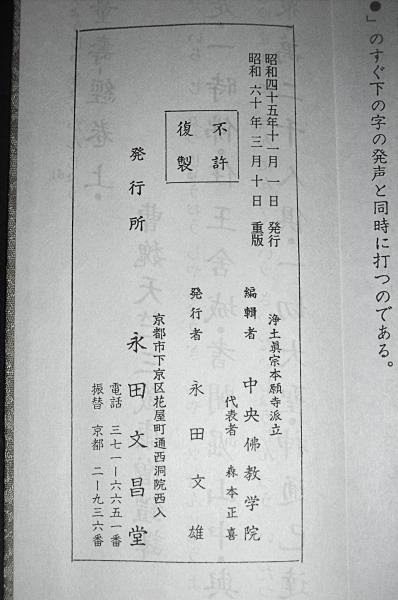 ●」のすぐ下の字の発声と同時に打つのである。
昭和四十五年十一月一日 発行
昭和六十年三月十日 重版
不許
復製
浄土真宗本願寺派立
編輯者 中央佛教学院
代表者 森本正喜
発行者 永田文雄
京都市下京区花屋町通西洞院西入
発行所 永田文昌堂
電話 三七一―六六五一番
振替 京都 二―九三六番